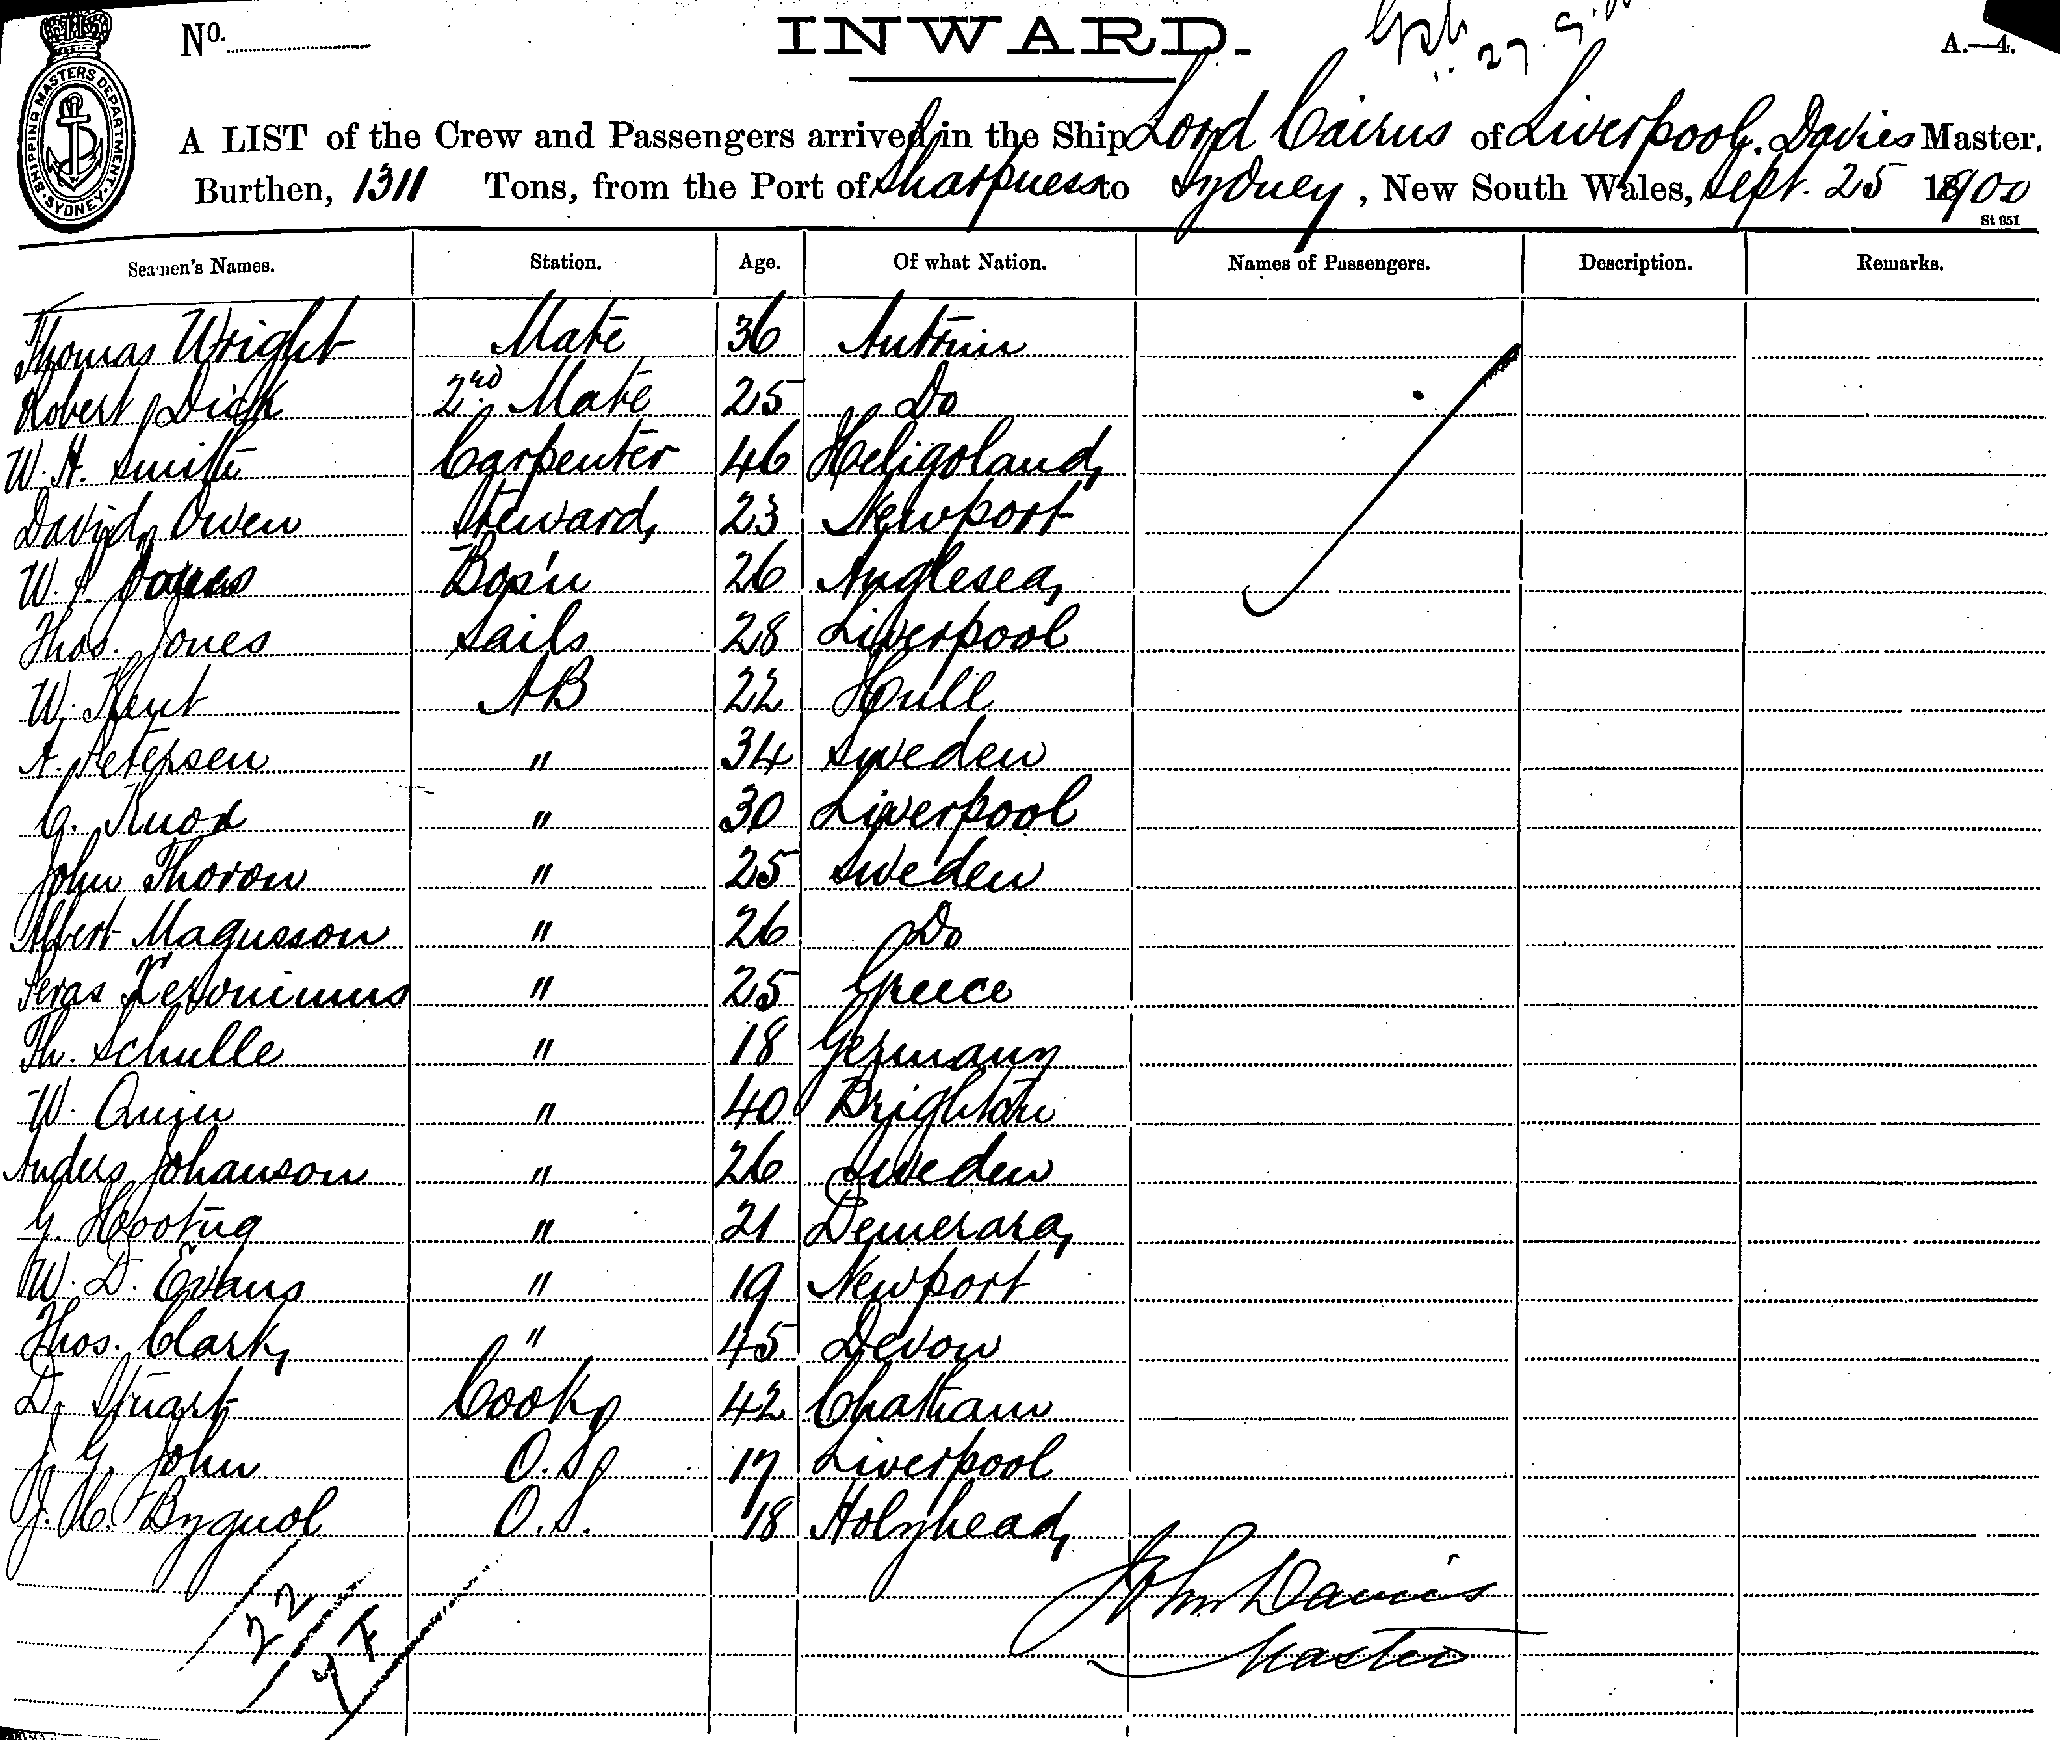 No.
INWARD.
A.—4.
SHIPPING MASTERS DEPARTMENT. SYDNEY
A LIST of the Crew and Passengers arrived in the Ship Lord Cairns of Liverpool, Davies Master,
Burthen, 1311 Tons, from the Port of Sharpness to Sydney, New South Wales, Sept. 25 1900
St 951
Seamen's Names. Station. Age. Of what Nation. Names of Passengers. Description. Remarks.
Thomas Wright Mate 36 Antrim
Robert Dick 2nd Mate 25 Do
W. H. Smith Carpenter 46 Heligoland
David Owen Steward 23 Newport
W. Jones Bos'n 26 Anglesea
Thos. Jones Sails 28 Liverpool
W. Kent AB 22 Hull
A. Petersen " 34 Sweden
C. Knox " 30 Liverpool
John Thoron " 25 Sweden
Albert Magnusson " 26 Do
" 25 Greece
Th. Schulle " 18 Germany
W. Quin " 40 Brighton
Anders Johanson " 26 Sweden
G. " 21 Demerara
W. D. Evans " 19 Newport
Thos. Clark " 45 Devon
D. Stuart Cook 42 Chatham
J. G. John O.S. 17 Liverpool
J. H. Bygnol O.S. 18 Holyhead
22
John Davies
Master